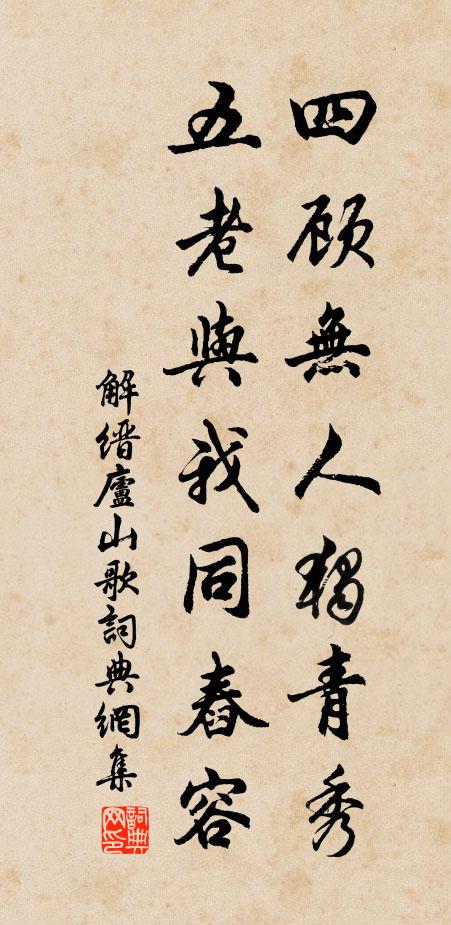 四顾無人獨青秀
五老與我同舂容
解縉廬山歌詞典網集
詞典
网印